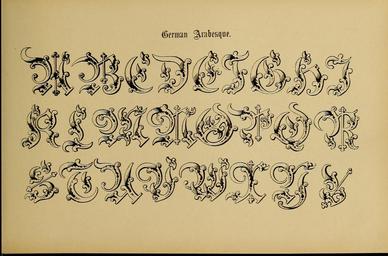 German Arabesque.
A B C D E F G H I
K L M N O P Q R
S T U V W X Y Z